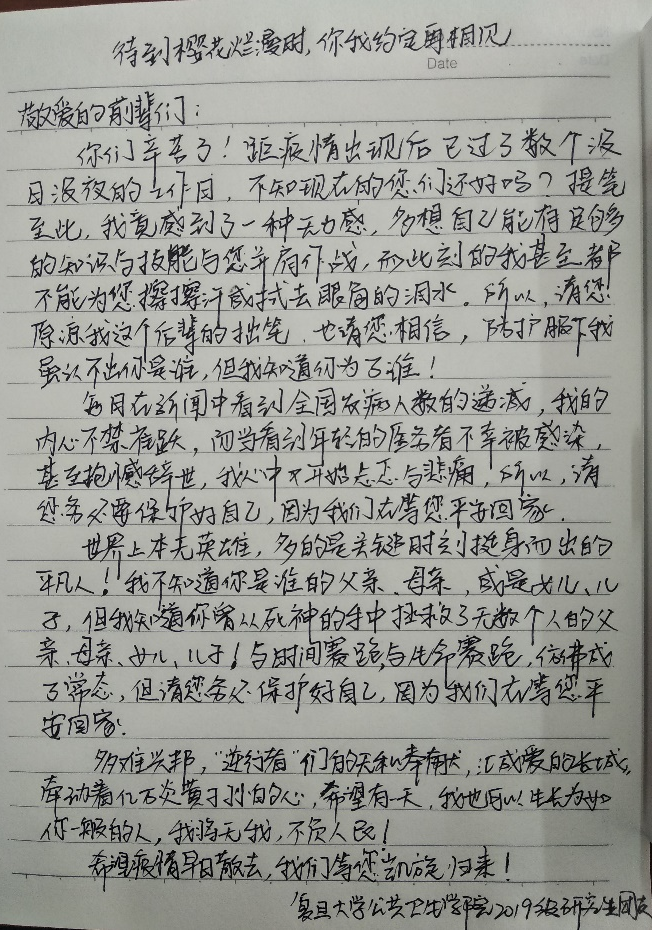 待到樱花烂漫时,你我约定再相见
Date
敬爱的前辈们:
你们辛苦了!距疫情出现后已过了数个没
日没夜的工作日,不知现在的您们还好吗?提笔
至此,我竟感到了一种无力感,多想自己能有足够多
的知识与技能与您并肩作战,而此刻的我甚至都
不能为您擦擦汗或拭去眼角的泪水。所以,请您
原谅我这个后辈的拙笔,也请您相信,防护服下我
虽认不出你是谁,但我知道你为了谁!
每日在新闻中看到全国发病人数的递减,我的
内心不禁雀跃,而当看到年轻的医务者不幸被感染,
甚至抱憾辞世,我心中又开始忐忑与悲痛,所以,请
您务必要保护好自己,因为我们在等您平安回家.
世界上本无英雄,多的是关键时刻挺身而出的
平凡人!我不知道你是谁的父亲、母亲,或是女儿、儿
子,但我知道你曾从死神的手中拯救了无数个人的父
亲、母亲、女儿、儿子!与时间赛跑,与生命赛跑,仿佛成
了常态,但请您务必保护好自己,因为我们在等您平
安回家.
多难兴邦,"逆行者"们的无私奉献,汇成爱的长城,
牵动着亿万炎黄子孙的心,希望有一天,我也可以生长为如
你一般的人,我将无我,不负人民!
希望疫情早日散去,我们等您凯旋归来!
复旦大学公共卫生学院2019级研究生团支